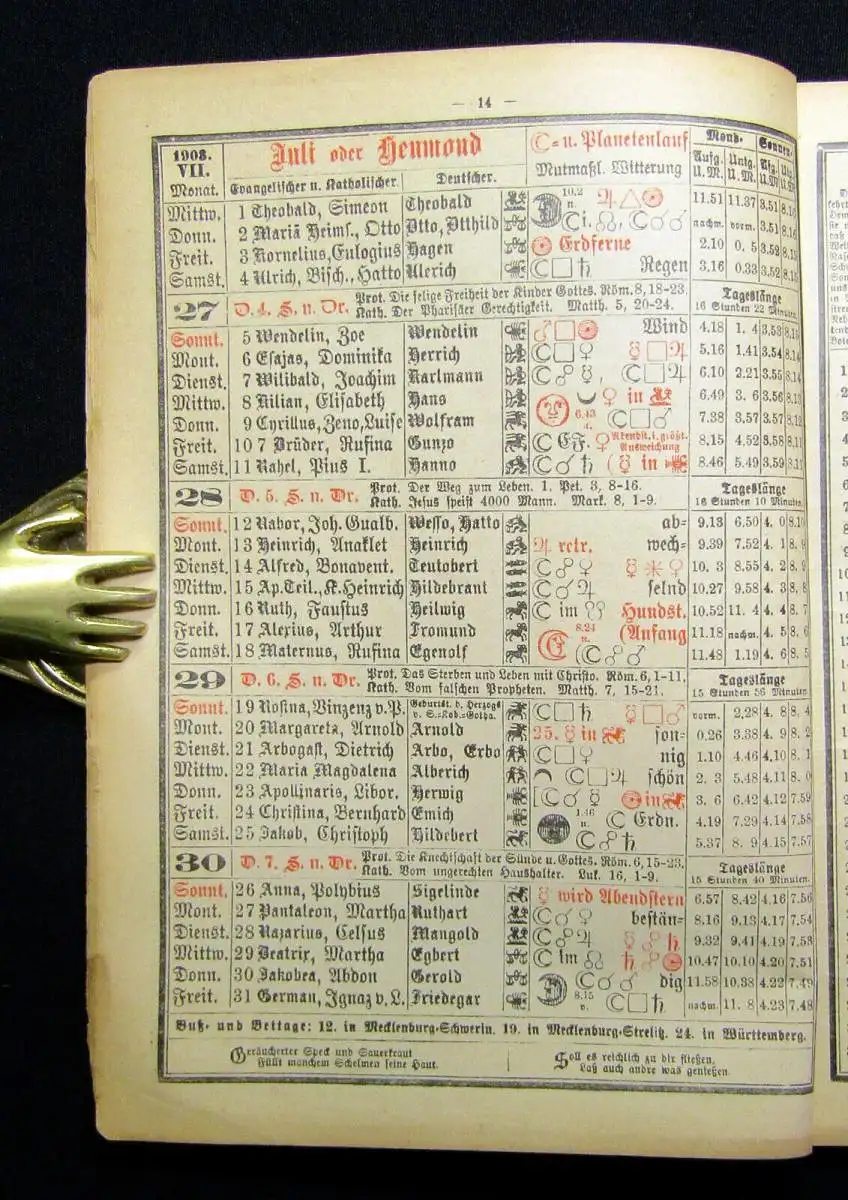 — 14 —
1908. VII. Monat.
Juli oder Heumond
☾= u. Planetenlauf
Mutmaßl. Witterung
Mond= Sonnen=
Evangelischer u. Katholischer. Deutscher.
Aufg. U.M. Untg. U.M. Afg. U.M Utg. U.M
Mittw. 1 Theobald, Simeon Theobald 10.2 n. ♃ △ ☉ 11.51 11.37 3.51
Donn. 2 Mariä Heims., Otto Otto, Otthild ☾ i. ☊, ☾ ☌ ♂ nachm. vorm. 3.51
Freit. 3 Kornelius, Eulogius Hagen ☉ Erdferne 2.10 0. 5 3.52
Samst. 4 Ulrich, Bisch., Hatto Ulerich ☾ □ ♄ Regen 3.16 0.33 3.52
27 D. 4. S. n. Dr. Prot. Die selige Freiheit der Kinder Gottes. Röm. 8, 18-23. Tageslänge
Kath. Der Pharisäer Gerechtigkeit. Matth. 5, 20-24. 16 Stunden 22 Minuten.
Sonnt. 5 Wendelin, Zoe Wendelin ♂ □ ☉ Wind 4.18 1. 4 3.53
Mont. 6 Esajas, Dominika Herrich ☾ □ ♀ ☿ □ ♃ 5.16 1.41 3.54 8.14
Dienst. 7 Wilibald, Joachim Karlmann ☾ ☍ ☿, ☾ □ ♃ 6.10 2.21 3.55
Mittw. 8 Kilian, Elisabeth Hans ♀ in 6.49 3. 6 3.56
Donn. 9 Cyrillus, Zeno, Luise Wolfram 6.43 ☾ □ ♂ 7.38 3.57 3.57
Freit. 10 7 Brüder, Rufina Gunzo ☾ EF. ♀ Abendst. i. größt. Ausweichung 8.15 4.52 3.58
Samst. 11 Rahel, Pius I. Hanno ☾ ☌ ♄ (☿ in 8.46 5.49 3.59
28 D. 5. S. n. Dr. Prot. Der Weg zum Leben. 1. Pet. 3, 8-16. Tageslänge
Kath. Jesus speist 4000 Mann. Mark. 8, 1-9. 16 Stunden 10 Minuten.
Sonnt. 12 Nabor, Joh. Gualb. Wesso, Hatto ab= 9.13 6.50 4. 0 8.10
Mont. 13 Heinrich, Anaklet Heinrich ♃ retr. wech= 9.39 7.52 4. 1 8. 9
Dienst. 14 Alfred, Bonavent. Teutobert ☾ ☍ ♀ ☿ ✳ ♀ 10. 3 8.55 4. 2 8. 9
Mittw. 15 Ap. Teil., K. Heinrich Hildebrant ☾ ☌ ♃ selnd 10.27 9.58 4. 3 8. 8
Donn. 16 Ruth, Faustus Heilwig ☾ im ☋ Hundst. 10.52 11. 4 4. 4 8. 7
Freit. 17 Alexius, Arthur Fromund 8.24 n. (Anfang 11.18 nachm. 4. 5 8. 6
Samst. 18 Maternus, Rufina Egenolf (☾ ☍ ♂ 11.48 1.19 4. 6 8. 5
29 D. 6. S. n. Dr. Prot. Das Sterben und Leben mit Christo. Röm. 6, 1-11. Tageslänge
Kath. Vom falschen Propheten. Matth. 7, 15-21. 15 Stunden 56 Minuten.
Sonnt. 19 Rosina, Vinzenz v. P. Geburtst. d. Herzogs v. S.=Kob.=Gotha. ☾ □ ♄ ☿ □ ♂ vorm. 2.28 4. 8 8. 4
Mont. 20 Margareta, Arnold Arnold 25. ☿ in son= 0.26 3.38 4. 9 8. 2
Dienst. 21 Arbogast, Dietrich Arbo, Erbo ☾ □ ♀ nig 1.10 4.46 4.10 8. 1
Mittw. 22 Maria Magdalena Alberich ☾ □ ♃ schön 2. 3 5.48 4.11 8. 0
Donn. 23 Apollinaris, Libor. Herwig [☾ ☌ ☿ ☉ in 3. 6 6.42 4.12 7.59
Freit. 24 Christina, Bernhard Emich 1.46 ☾ Erdn. 4.19 7.29 4.14 7.58
Samst. 25 Jakob, Christoph Hildebert ☾ ☍ ♄ 5.37 8. 9 4.15 7.57
30 D. 7. S. n. Dr. Prot. Die Knechtschaft der Sünde u. Gottes. Röm. 6, 15-23. Tageslänge
Kath. Vom ungerechten Haushalter. Luk. 16, 1-9. 15 Stunden 40 Minuten.
Sonnt. 26 Anna, Polybius Sigelinde ☿ wird Abendstern 6.57 8.42 4.16 7.56
Mont. 27 Pantaleon, Martha Ruthart ☾ ☌ ♀ bestän= 8.16 9.13 4.17 7.54
Dienst. 28 Nazarius, Celsus Mangold ☾ ☍ ♃ ☿ ☍ ♄ 9.32 9.41 4.19 7.53
Mittw. 29 Beatrix, Martha Egbert ☾ im ☊ ♄ ☍ ☉ 10.47 10.10 4.20 7.51
Donn. 30 Jakobea, Abdon Gerold ☾ ☌ ♂ dig 11.58 10.38 4.22 7.49
Freit. 31 German, Ignaz v. L. Friedegar 8.15 v. ☾ □ ♄ nachm. 11. 8 4.23 7.48
Buß= und Bettage: 12. in Mecklenburg=Schwerin. 19. in Mecklenburg=Strelitz. 24. in Württemberg.
Geräucherter Speck und Sauerkraut
Füllt manchem Schelmen seine Haut.
Soll es reichlich zu dir fließen,
Laß auch andre was genießen.